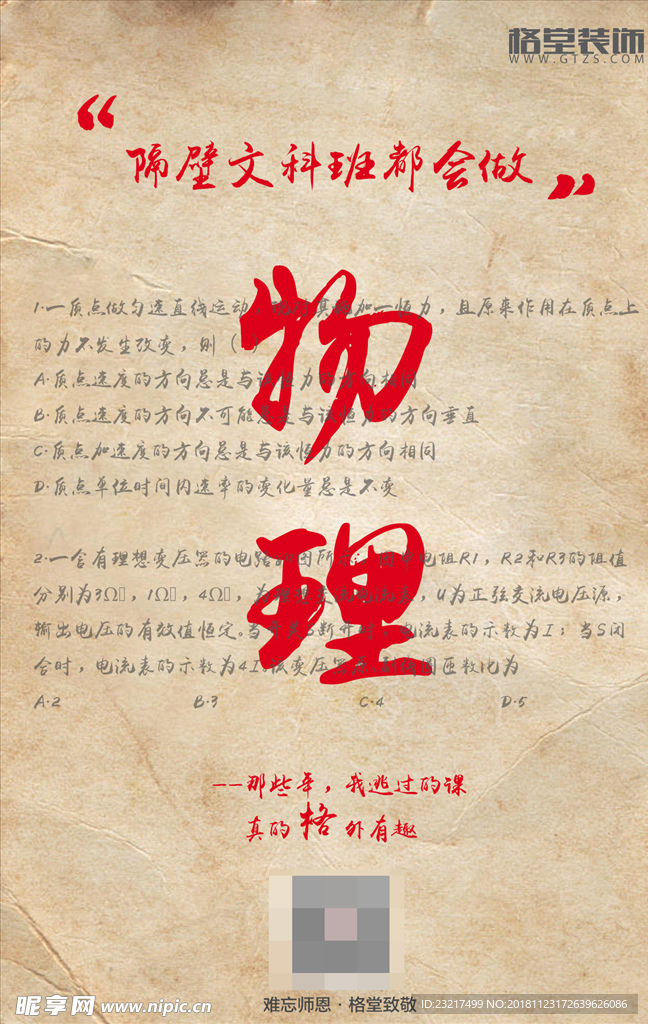 格堂装饰
WWW.GTZS.COM
“隔壁文科班都会做”
物
理
1.一质点做匀速直线运动,现对其施加一恒力,且原来作用在质点上
的力不发生改变,则( )
A.质点速度的方向总是与该恒力的方向相同
B.质点速度的方向不可能总是与该恒力的方向垂直
C.质点加速度的方向总是与该恒力的方向相同
D.质点单位时间内速率的变化量总是不变
2.一含有理想变压器的电路如图所示,图中电阻R1,R2和R3的阻值
分别为3Ω,1Ω,4Ω,为理想交流电流表,U为正弦交流电压源,
输出电压的有效值恒定.当开关S断开时,电流表的示数为I;当S闭
合时,电流表的示数为4I.该变压器原、副线圈匝数比为
A.2 B.3 C.4 D.5
--那些年,我逃过的课
真的格外有趣
难忘师恩·格堂致敬
昵享网 www.nipic.cn
ID:23217499 NO:20181123172639626086